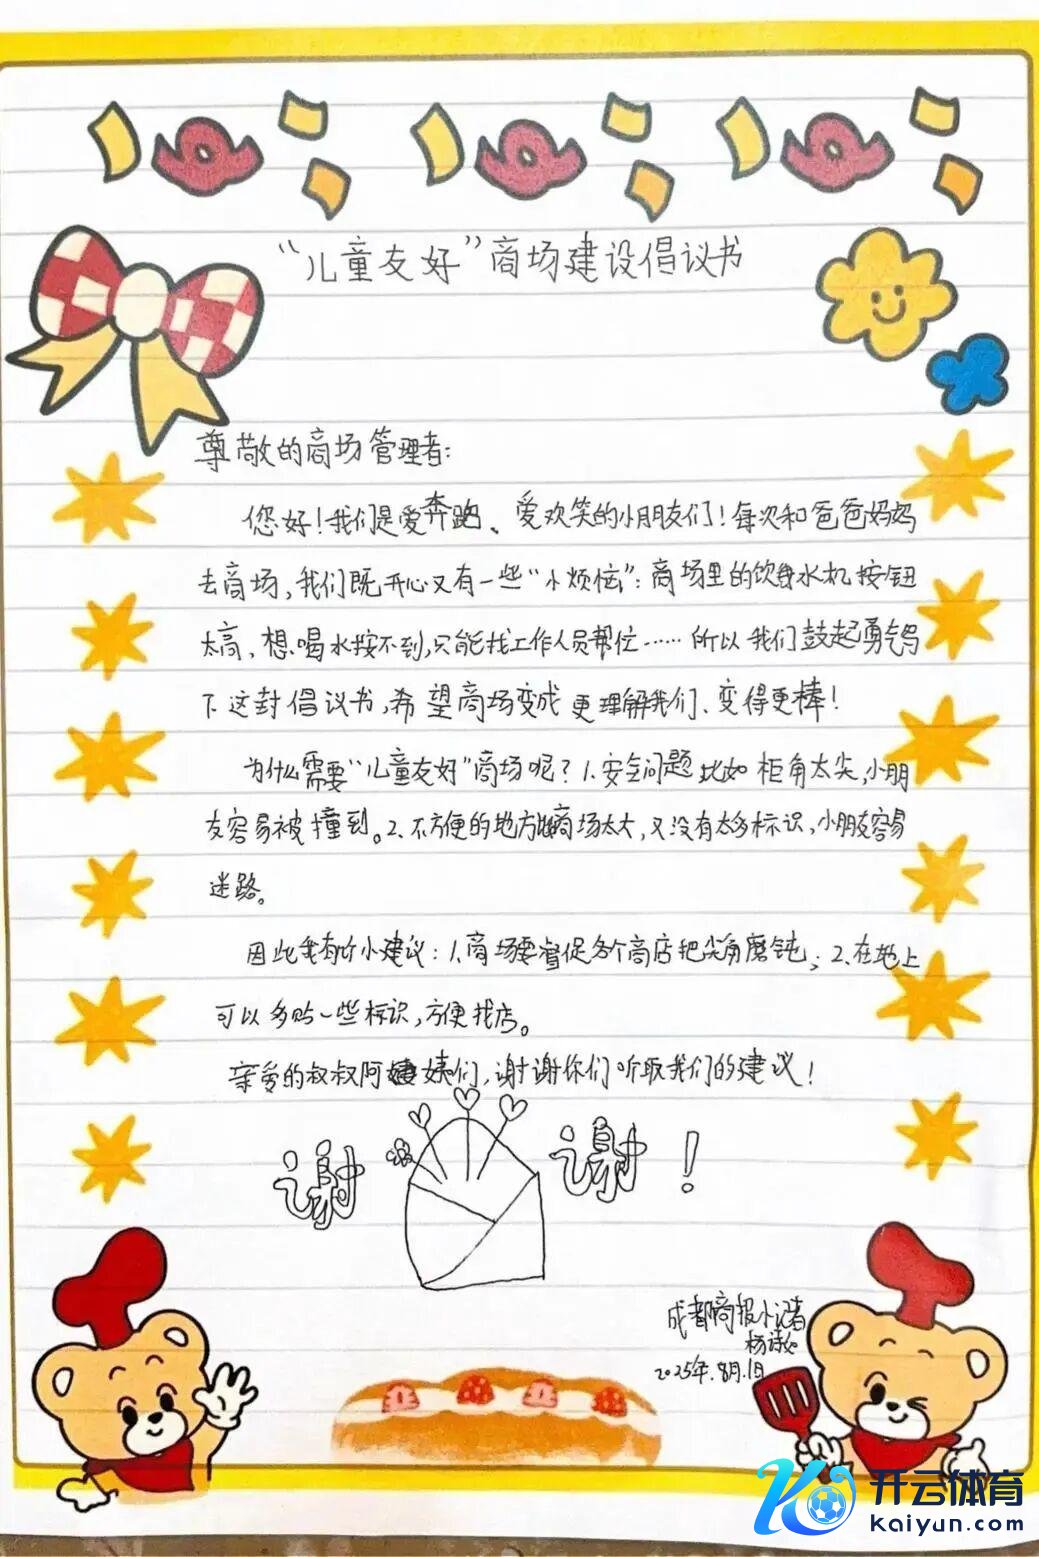 “儿童友好”商场建设倡议书
尊敬的商场管理者:
您好!我们是爱奔跑、爱欢笑的小朋友们!每次和爸爸妈妈
去商场,我们既开心又有一些“小烦恼”:商场里的饮水机按钮
太高,想喝水按不到,只能找工作人员帮位……所以我们鼓起勇气写
下这封倡议书,希望商场变成更理解我们、变得更棒!
为什么需要“儿童友好”商场呢?1.安全问题比如柜角太尖,小朋
友容易被撞到。2.不方便的地方 商场太大,又没有太多标识,小朋友容易
迷路。
因此我有 小建议:1.商场要督促各个商店把尖角磨钝;2.在地上
可以多贴一些标识,方便找店。
亲爱的叔叔阿姨们,谢谢你们听取我们的建议!
谢谢!
成都商报小记者
杨
2025年.8月.1日
开云体育
kaiyun.com